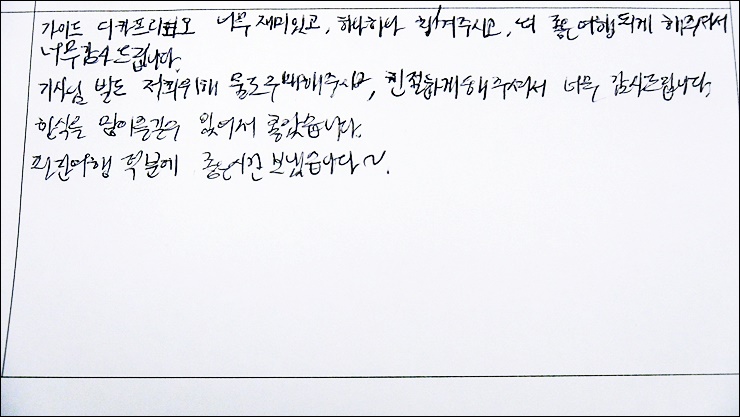 가이드 디카프리표오 너무 재미있고, 하나하나 챙겨주시고, 더 좋은여행되게 해주셔서
너무감사드립니다.
기사님 빌도 저희위해 물도주 해주시고, 친절하게해주셔서 너무 감사드립니다.
한식을 많이 있어서 좋았습니다.
여행 덕분에 좋은시간 보냈습니다~.